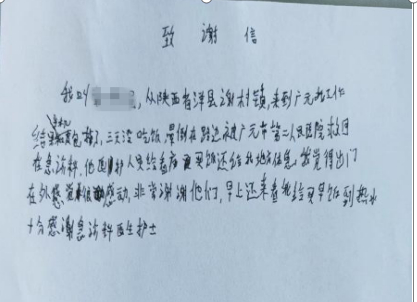 致谢信
我叫，从陕西省洋县谢村镇，来到广元找工作
结果钱包掉了，三天没吃饭晕倒在路边被广元市第二人民医院救回
在急诊科，他们护人员给看病买饭还给地方住。我觉得出门
在外感动，非常谢谢他们，早上还来看我给买早饭到热水
十分感谢急诊科医生护士